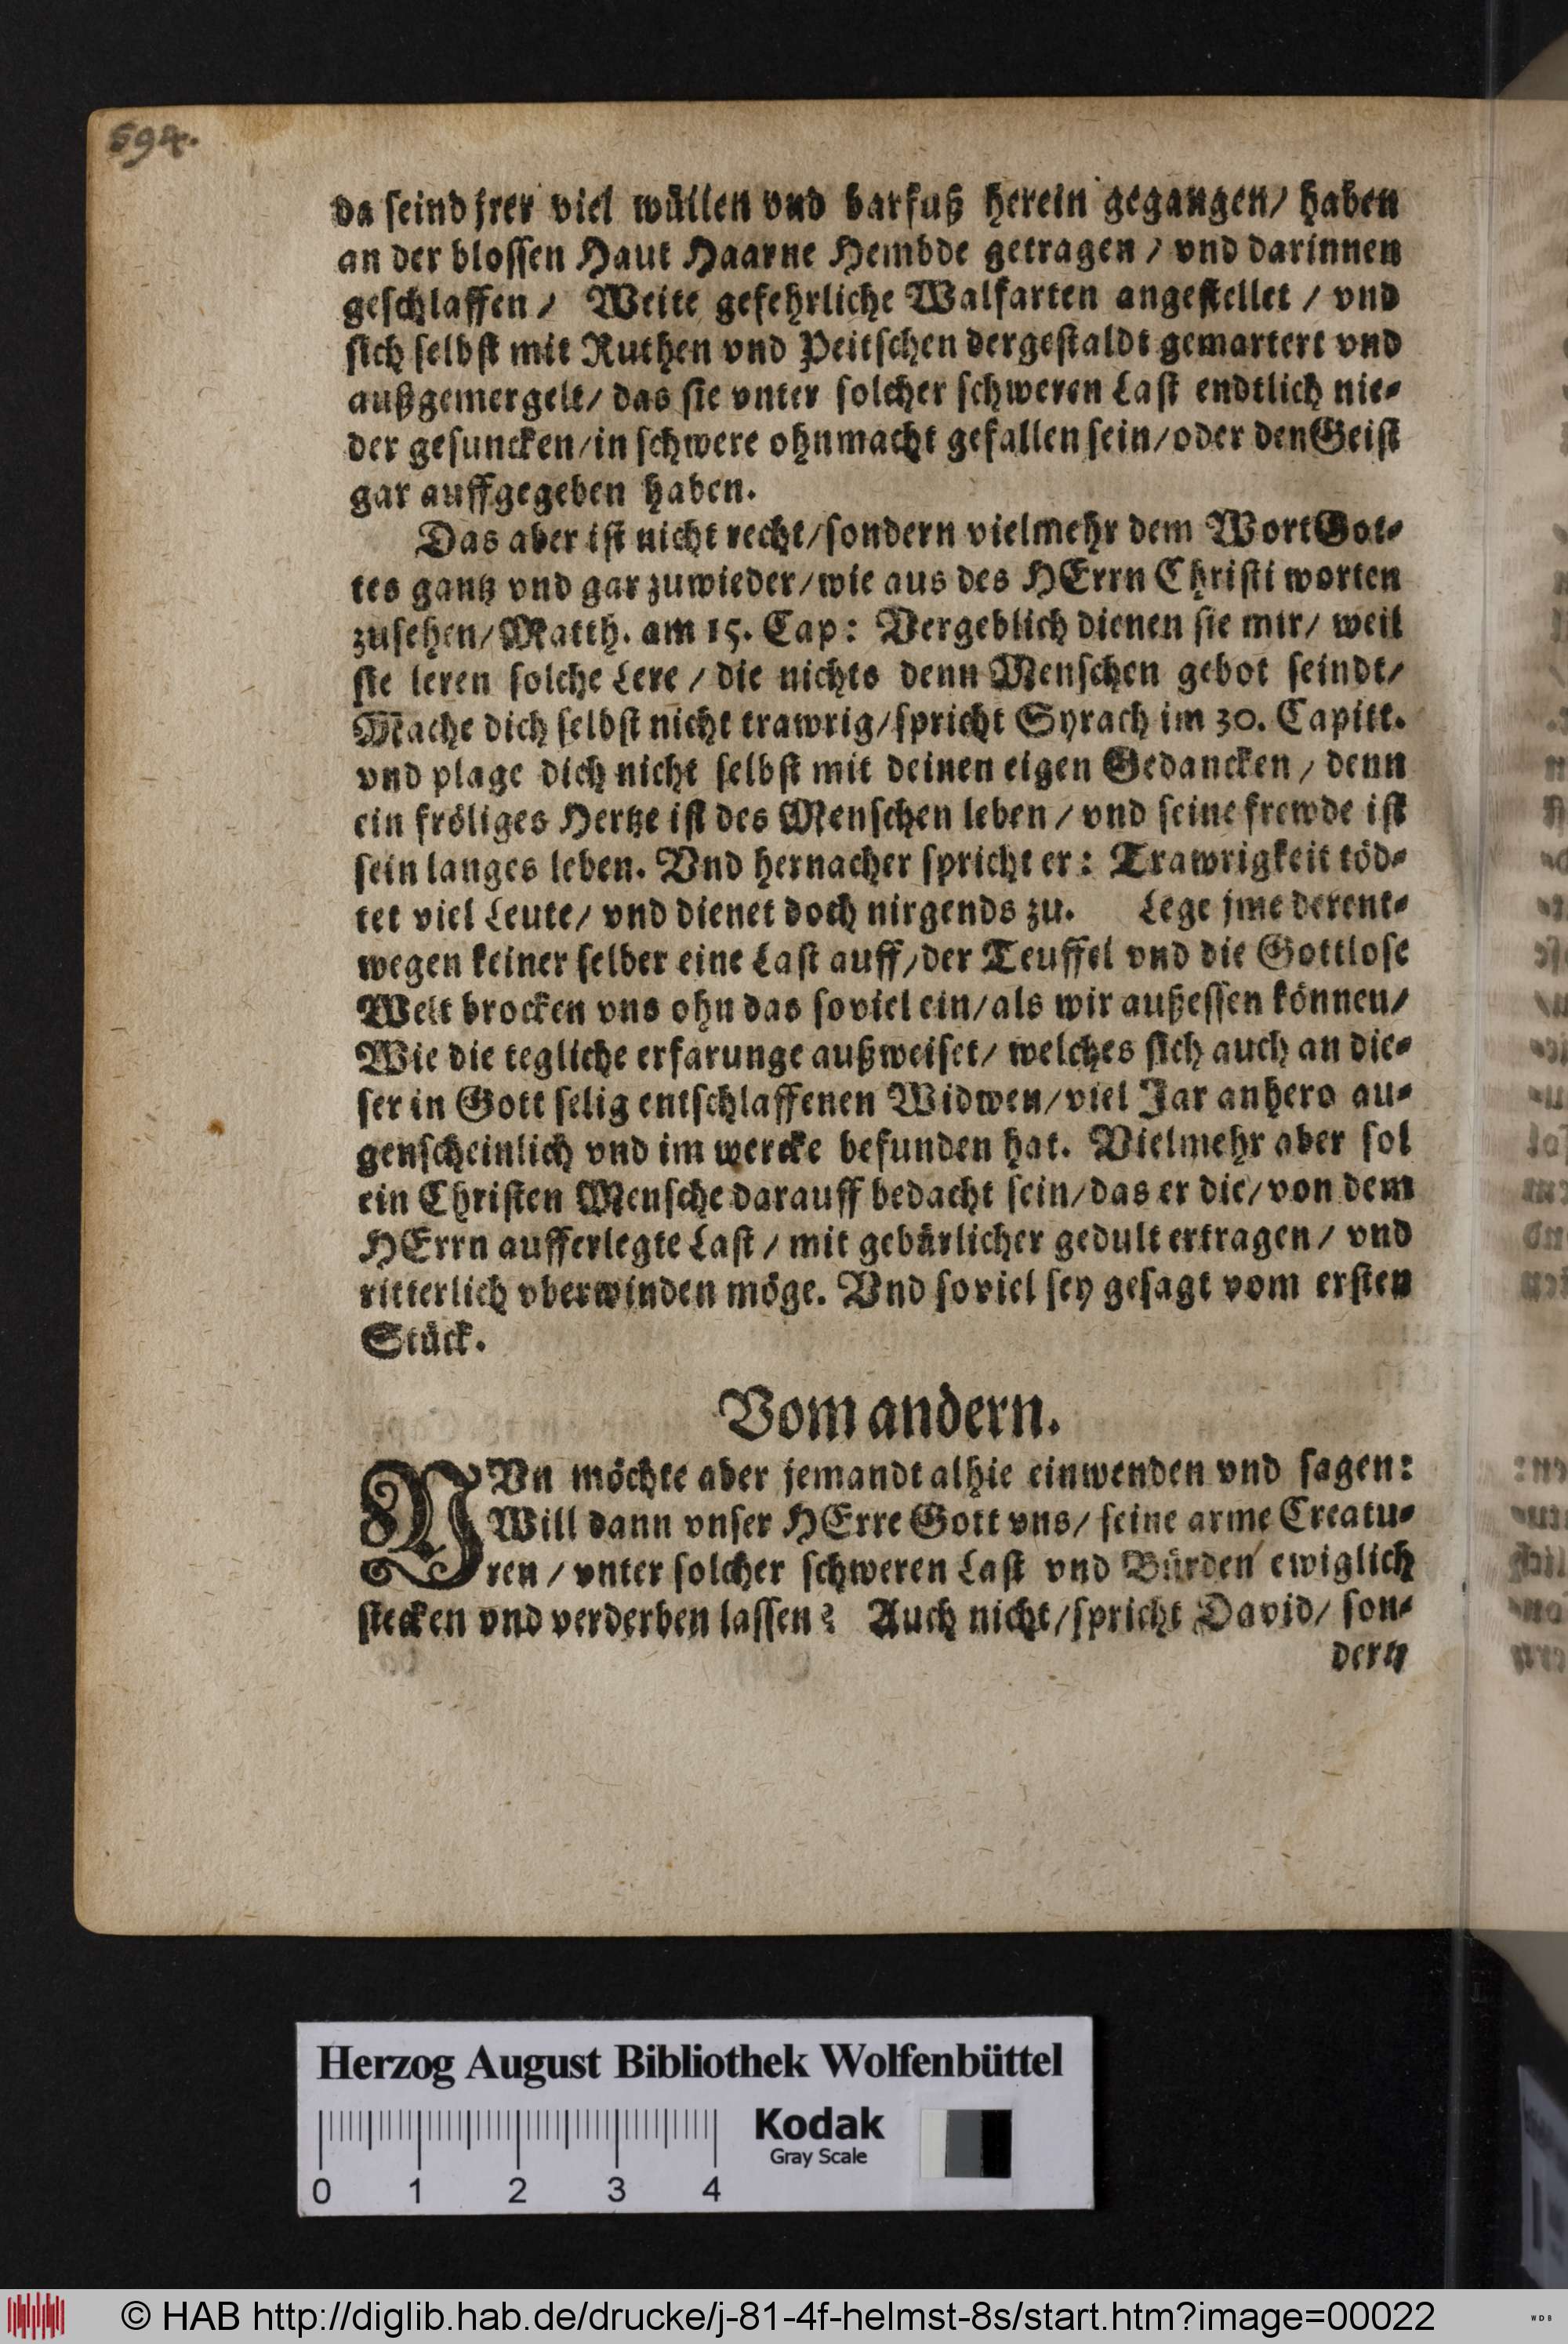 594.
da seind jrer viel wüllen vnd barfuß herein gegangen/ haben
an der blossen Haut Haarne Hembde getragen / vnd darinnen
geschlaffen / Weite gefehrliche Walfarten angestellet / vnd
sich selbst mit Ruthen vnd Peitschen dergestaldt gemartert vnd
außgemergelt/ das sie vnter solcher schweren Last endtlich nie-
der gesuncken/in schwere ohnmacht gefallen sein/oder den Geist
gar auffgegeben haben.
Das aber ist nicht recht/sondern vielmehr dem Wort Got-
tes gantz vnd gar zuwieder/wie aus des HErrn Christi worten
zusehen/Matth. am 15. Cap: Vergeblich dienen sie mir/ weil
sie leren solche Lere / die nichts denn Menschen gebot seindt/
Mache dich selbst nicht trawrig/spricht Syrach im 30. Capitt.
vnd plage dich nicht selbst mit deinen eigen Gedancken / denn
ein fröliges Hertze ist des Menschen leben / vnd seine frewde ist
sein langes leben. Vnd hernacher spricht er: Trawrigkeit töd-
tet viel Leute/ vnd dienet doch nirgends zu. Lege jme derent-
wegen keiner selber eine Last auff/der Teuffel vnd die Gottlose
Welt brocken vns ohn das soviel ein/als wir außessen können/
Wie die tegliche erfarunge außweiset/ welches sich auch an die-
ser in Gott selig entschlaffenen Widwen/viel Jar anhero au-
genscheinlich vnd im wercke befunden hat. Vielmehr aber sol
ein Christen Mensche darauff bedacht sein/das er die/von dem
HErrn aufferlegte Last / mit gebürlicher gedult ertragen / vnd
ritterlich vberwinden möge. Vnd soviel sey gesagt vom ersten
Stück.
Vom andern.
NVn möchte aber jemandt alhie einwenden vnd sagen:
Will dann vnser HErre Gott vns/ seine arme Creatu-
ren / vnter solcher schweren Last vnd Bürden ewiglich
stecken vnd verderben lassen? Auch nicht/spricht David/ son-
dern
Herzog August Bibliothek Wolfenbüttel
Kodak
Gray Scale
0 1 2 3 4
© HAB http://diglib.hab.de/drucke/j-81-4f-helmst-8s/start.htm?image=00022
WDB